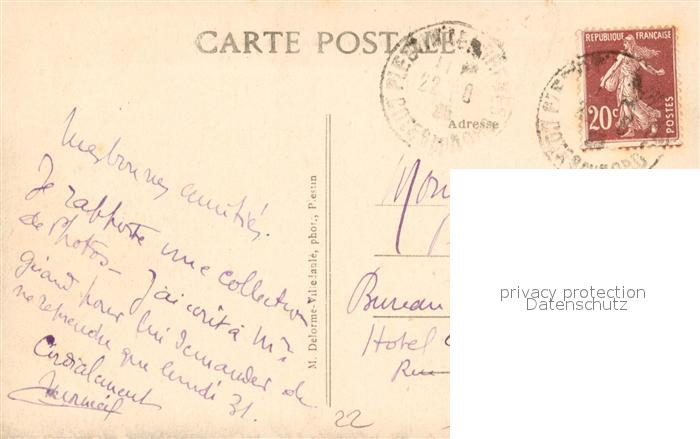 CARTE POSTALE
REPUBLIQUE FRANÇAISE
20c
POSTES
22
Adresse
Mes bonnes amitiés.
Je rapporte une collection
de photos - J'ai écrit à Mr
quand pour lui demander de
ne reprendre que lundi 31.
Cordialement
M. Delorme-Villedaulé, photo, Plestin
Bureau
Hotel
Rue
22
privacy protection
Datenschutz